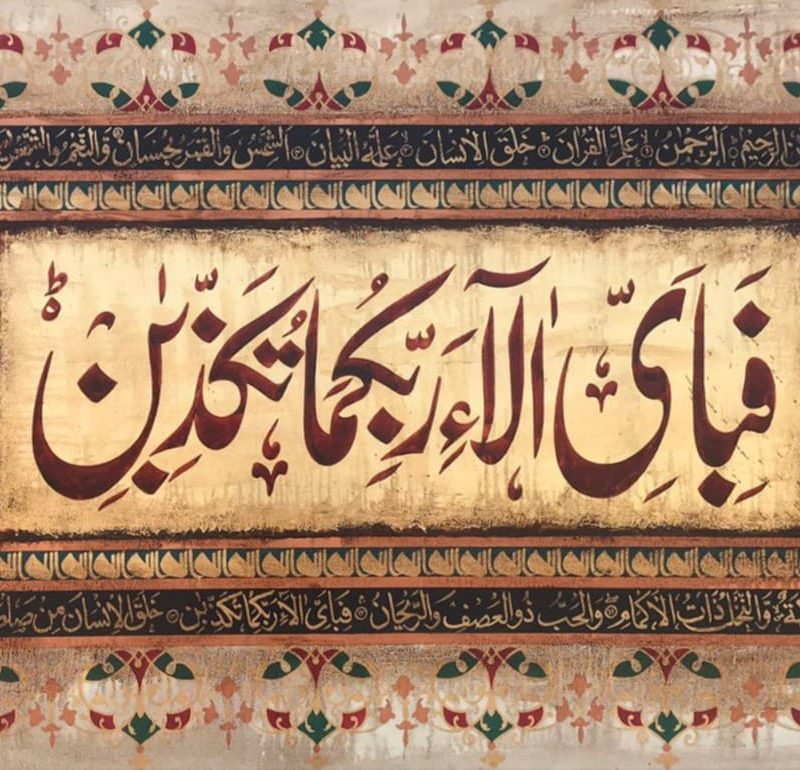 الرحيم الرحمٰن علم القرآن خلق الانسان علمه البيان الشمس والقمر بحسبان والنجم والشجر
فَبِاَيِّ اٰلَآءِ رَبِّكُمَا تُكَذِّبٰنِ ؕ
والنخل ذات الاكمام والحب ذو العصف والريحان فباي الاء ربكما تكذبٰن خلق الانسان من